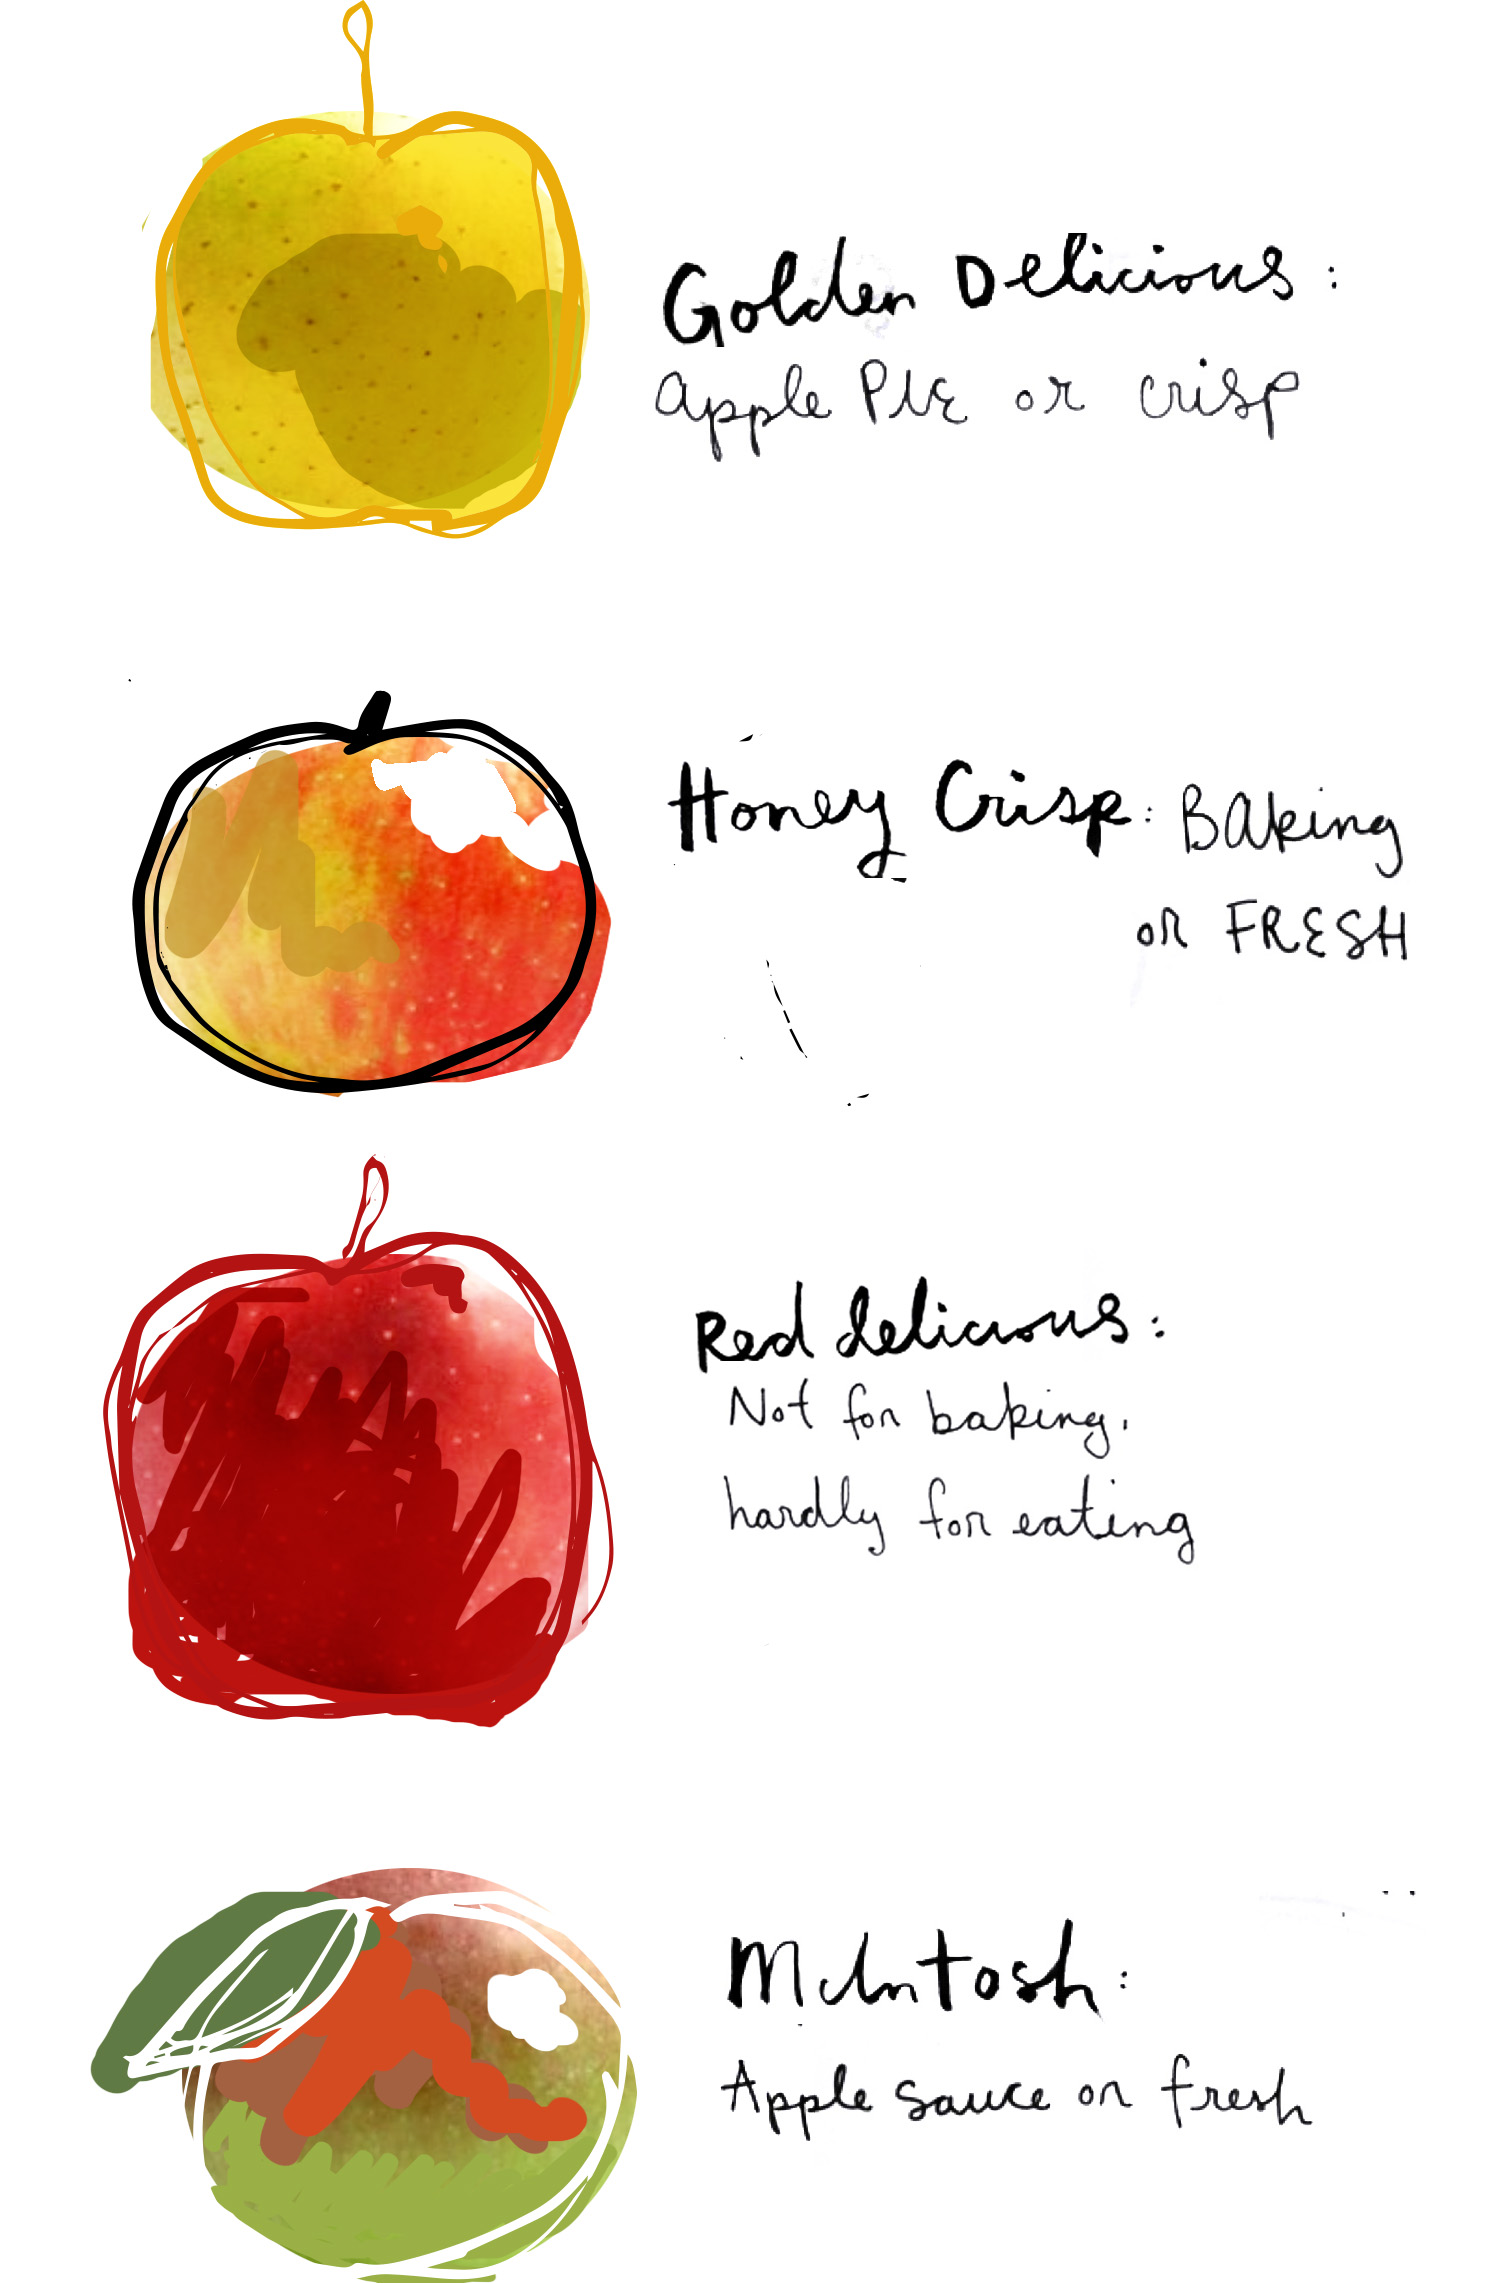 Golden Delicious:
apple PIE or crisp
Honey Crisp: BAking
or FRESH
Red delicious:
Not for baking,
hardly for eating
McIntosh:
Apple sauce or fresh